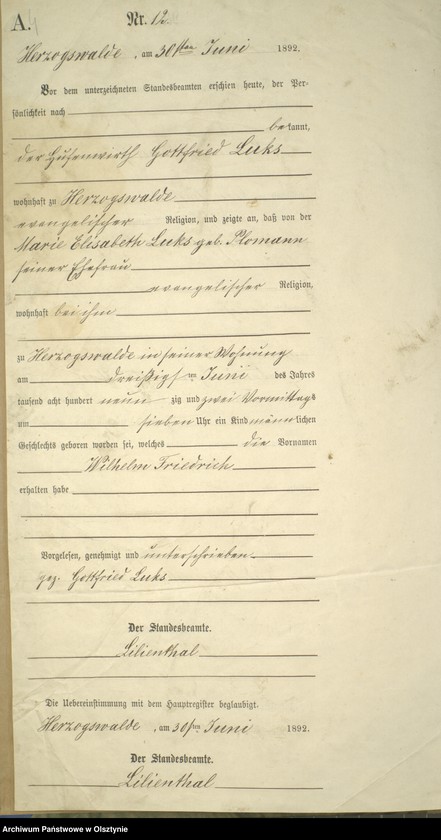 A.
Nr. 12.
Herzogswalde, am 30sten Juni 1892.
Vor dem unterzeichneten Standesbeamten erschien heute, der Per-
sönlichkeit nach
bekannt,
der Hufenwirth Gottfried Luks
wohnhaft zu Herzogswalde
evangelischer Religion, und zeigte an, daß von der
Marie Elisabeth Luks geb. Plomann
seiner Ehefrau
evangelischer Religion,
wohnhaft bei ihm
zu Herzogswalde in seiner Wohnung
am dreißigsten Juni des Jahres
tausend acht hundert neun zig und zwei Vormittags
um sieben Uhr ein Kind männlichen
Geschlechts geboren worden sei, welches die Vornamen
Wilhelm Friedrich
erhalten habe
Vorgelesen, genehmigt und unterschrieben
gez. Gottfried Luks
Der Standesbeamte.
Lilienthal
Die Uebereinstimmung mit dem Hauptregister beglaubigt.
Herzogswalde, am 30sten Juni 1892.
Der Standesbeamte.
Lilienthal
Archiwum Państwowe w Olsztynie